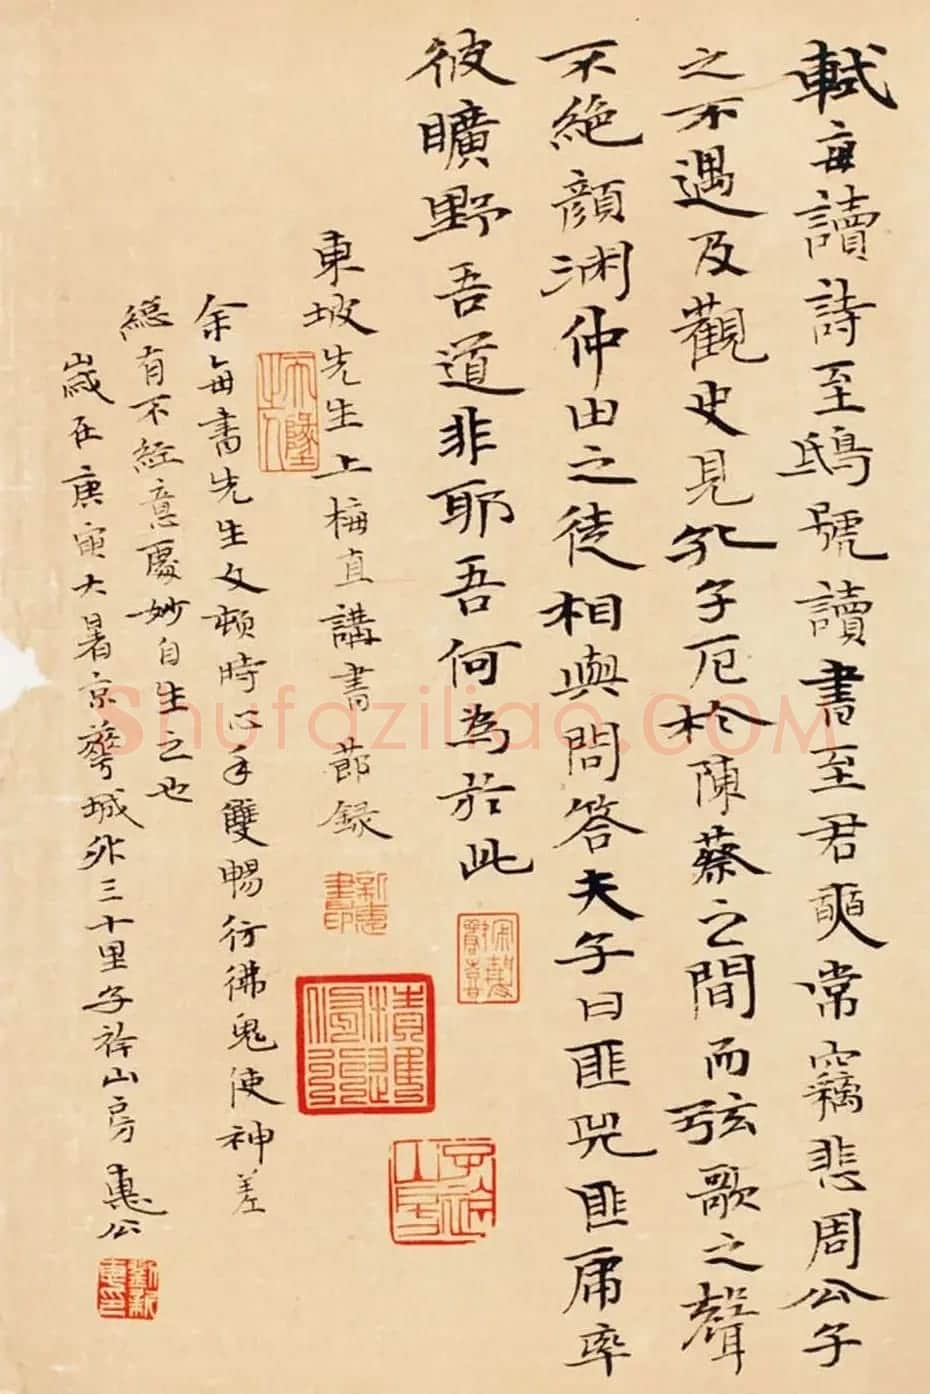 軾每讀詩至鴟號讀書至君奭常竊悲周公子
之不遇及觀史見孔子厄於陳蔡之間而弦歌之聲
不絕顏渊仲由之徒相與問答夫子曰匪兕匪虎率
彼曠野吾道非耶吾何為於此
東坡先生上梅直講書節録
余每書先生文頓時心手雙暢彷彿鬼使神差
縂有不經意處妙自生之也
歲在庚寅大暑京華城外三十里子衿山房惠公
新惠書印
子衿山房
劉新惠印
Shufaziliao.COM